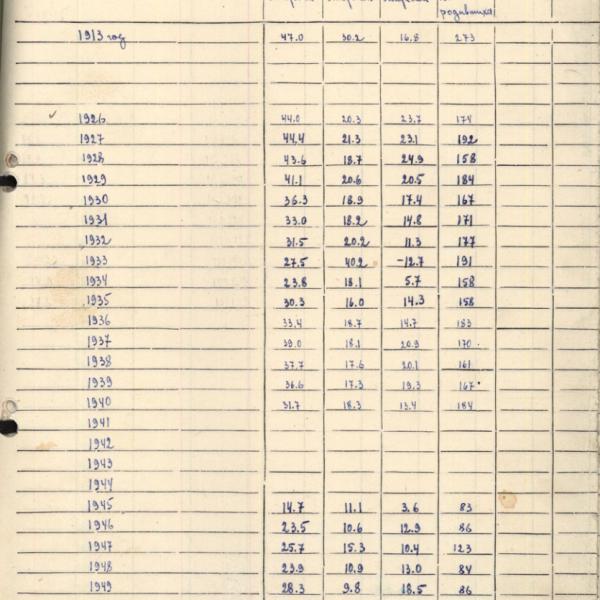 родившихся
1913 год 47.0 30.2 16.8 273
1926 44.0 20.3 23.7 174
1927 44.4 21.3 23.1 192
1928 43.6 18.7 24.9 158
1929 41.1 20.6 20.5 184
1930 36.3 18.9 17.4 167
1931 33.0 18.2 14.8 171
1932 31.5 20.2 11.3 177
1933 27.5 40.2 -12.7 191
1934 23.8 18.1 5.7 158
1935 30.3 16.0 14.3 158
1936 33.4 18.7 14.7 183
1937 39.0 18.1 20.9 170
1938 37.7 17.6 20.1 161
1939 36.6 17.3 19.3 167
1940 31.7 18.3 13.4 184
1941
1942
1943
1944
1945 14.7 11.1 3.6 83
1946 23.5 10.6 12.9 86
1947 25.7 15.3 10.4 123
1948 23.9 10.9 13.0 84
1949 28.3 9.8 18.5 86